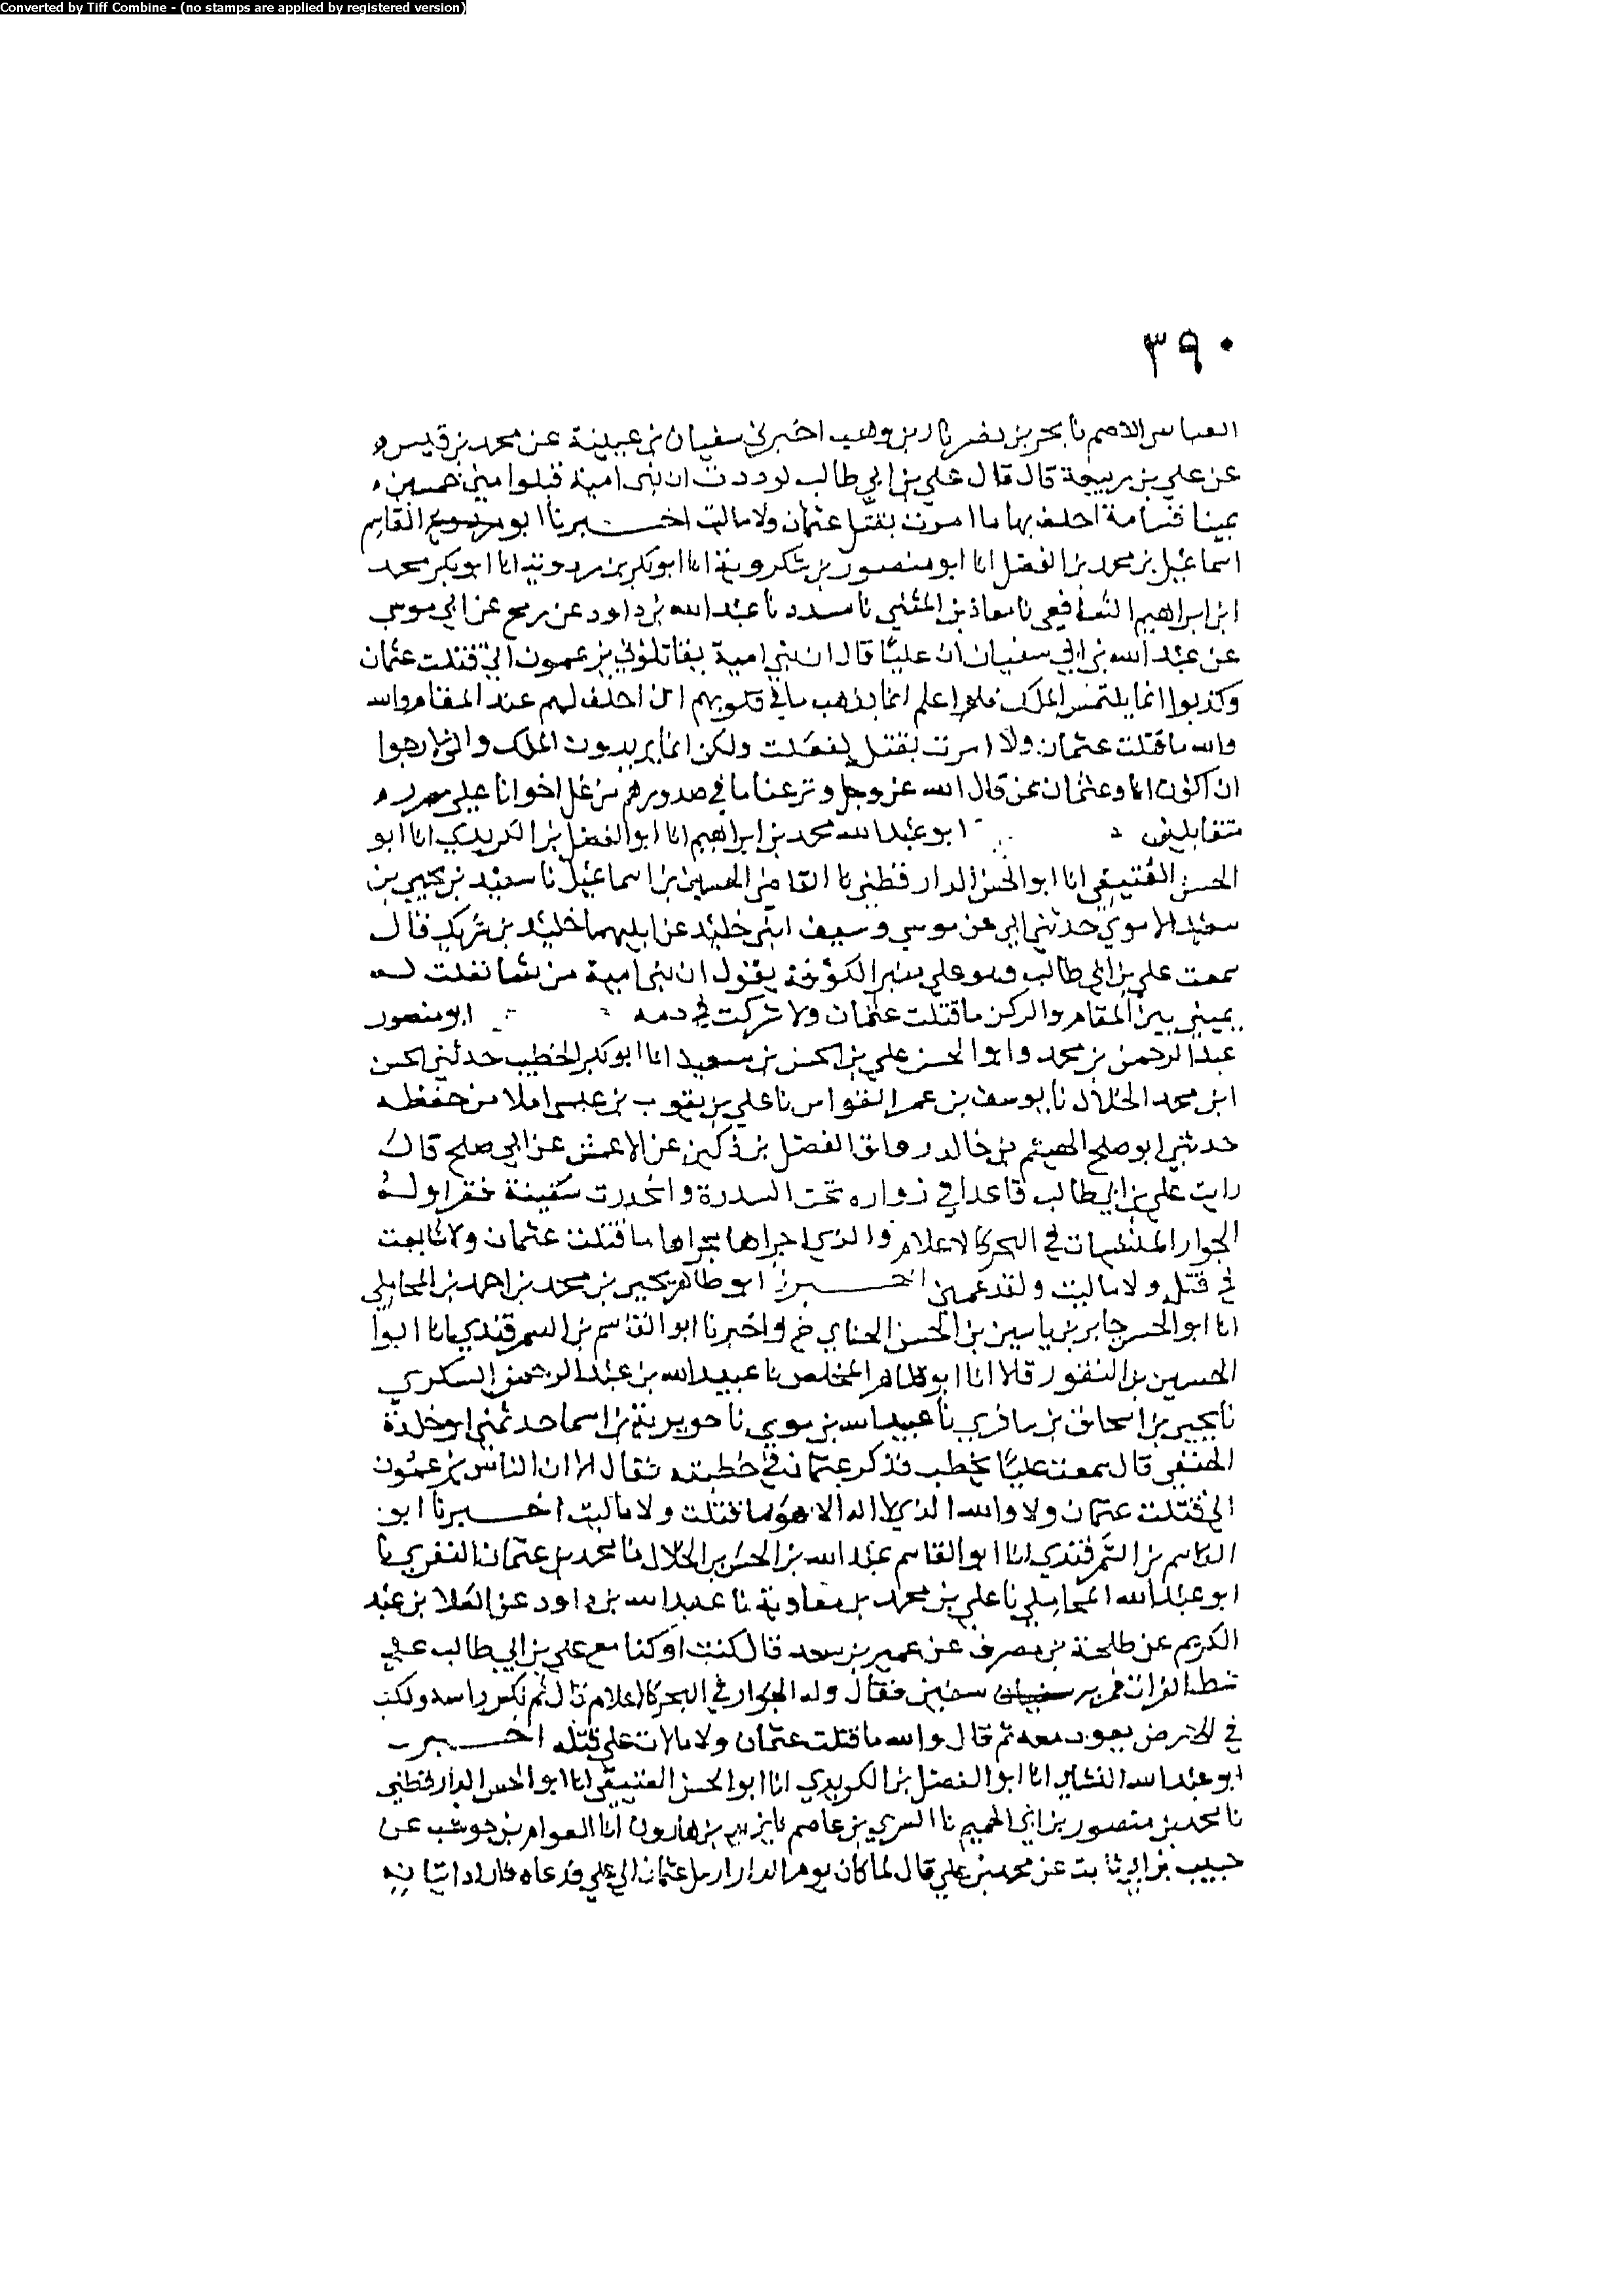 Converted by Tiff Combine - (no stamps are applied by registered version)
٣٩٠
العباس الاصم نا بحر بن نصر نا بن وهب اخبرني سفيان بن عيينة عن محمد بن قيس
عن علي بن ربيعة قال قال علي بن ابي طالب لوددت ان بني امية قبلوا مني خمسين
يمينا قسامة احلف بها ما امرت بقتل عثمان ولا مالات اخبرنا ابو القاسم
اسماعيل بن محمد بن الفضل انا ابو منصور بن شكروية انا ابو بكر بن مردوية انا ابو بكر محمد
ابن ابراهيم الشافعي نا معاذ بن المثني نا مسدد نا عبد الله بن داود عن ربيع عن ابي موسي
عن عبد الله بن ابي سفيان ان عليا قال ان بني امية يقاتلوني يزعمون اني قتلت عثمان
وكذبوا انما يلتمس الملك فلو اعلم انما يذهب ما في قلوبهم ان احلف لهم عند المقام والله
والله ما قتلت عثمان ولا امرت بقتله لفعلت ولكن انما يريدون الملك واني لارجوا
ان اكون انا وعثمان ممن قال الله عز وجل ونزعنا ما في صدورهم من غل اخوانا علي سرر
متقابلين ابو عبد الله محمد بن ابراهيم انا ابو الفضل بن الكريدي انا ابو
الحسن العتيقي انا ابو الحسن الدارقطني نا القاضي الحسين بن اسماعيل نا سعيد بن يحيي بن
سعيد الاموي حدثني ابي عن موسي وسيف ابني خليد عن ابيهما خليد بن شريك قال
سمعت علي بن ابي طالب وهو علي منبر الكوفة يقول ان بني امية من شا نفلت له
يميني بين المقام والركن ما قتلت عثمان ولا شركت في دمه ابو منصور
عبد الرحمن بن محمد وابو الحسن علي بن الحسن بن سعيد انا ابو بكر الخطيب حدثني الحسن
ابن محمد الخلال نا يوسف بن عمر القواس نا علي بن يعقوب بن عيسي املا من حفظه
حدثني ابو صلح الهيثم بن خالد الفضل بن دكين عن الاعمش عن ابي صلح قال
رايت علي بن ابي طالب قاعدا في زواره تحت السدرة وانحدرت سفينة فقرا وله
الجوار المنشات في البحر كالاعلام والذي اجراها مجراها ما قتلت عثمان ولا تابعت
في قتله ولا ماليت ولقد غمني اخبرنا ابو طاهر يحيي بن محمد بن احمد بن المحاملي
انا ابو الحسن جابر بن ياسين بن الحسن الحناي ح واخبرنا ابو القاسم بن السمرقندي انا ابوا
الحسين بن النقور قالا انا ابو طاهر المخلص نا عبيد الله بن عبد الرحمن السكري
نا يحيي بن اسحاق بن سافري نا عبيد الله بن موسي نا جويرية بن اسما حدثني ابو خلدة
الحنفي قال سمعت عليا يخطب فذكر عثمان في خطبته فقال الا ان الناس يزعمون
اني قتلت عثمان ولا والله الذي لا اله الا هو ما قتلت ولا ماليت اخبرنا ابو
القاسم بن السمرقندي انا ابو القاسم عبد الله بن الحسن بن الخلال نا محمد بن عثمان النفري نا
ابو عبد الله المحاملي نا علي بن محمد بن معاوية نا عبد الله بن داود عن العلا بن عبد
الكريم عن طلحة بن مصرف عن عمير بن سعد قال كنت او كنا مع علي بن ابي طالب علي
شط الفرات فمر به سفين فقال وله الجوار في البحر كالاعلام قال ثم نكس راسه ونكت
في الارض بعود معه ثم قال والله ما قتلت عثمان ولا مالات علي قتله اخبرنا
ابو عبد الله النشابي انا ابو الفضل بن الكريدي انا ابو الحسن العتيقي انا ابو الحسن الدارقطني
نا محمد بن منصور بن ابي الجهم نا السري بن عاصم نا يزيد بن هارون انا العوام بن حوشب عن
حبيب بن ابي ثابت عن محمد بن علي قال لما كان يوم الدار ارسل عثمان الي علي فدعاه فاراد اتيانه